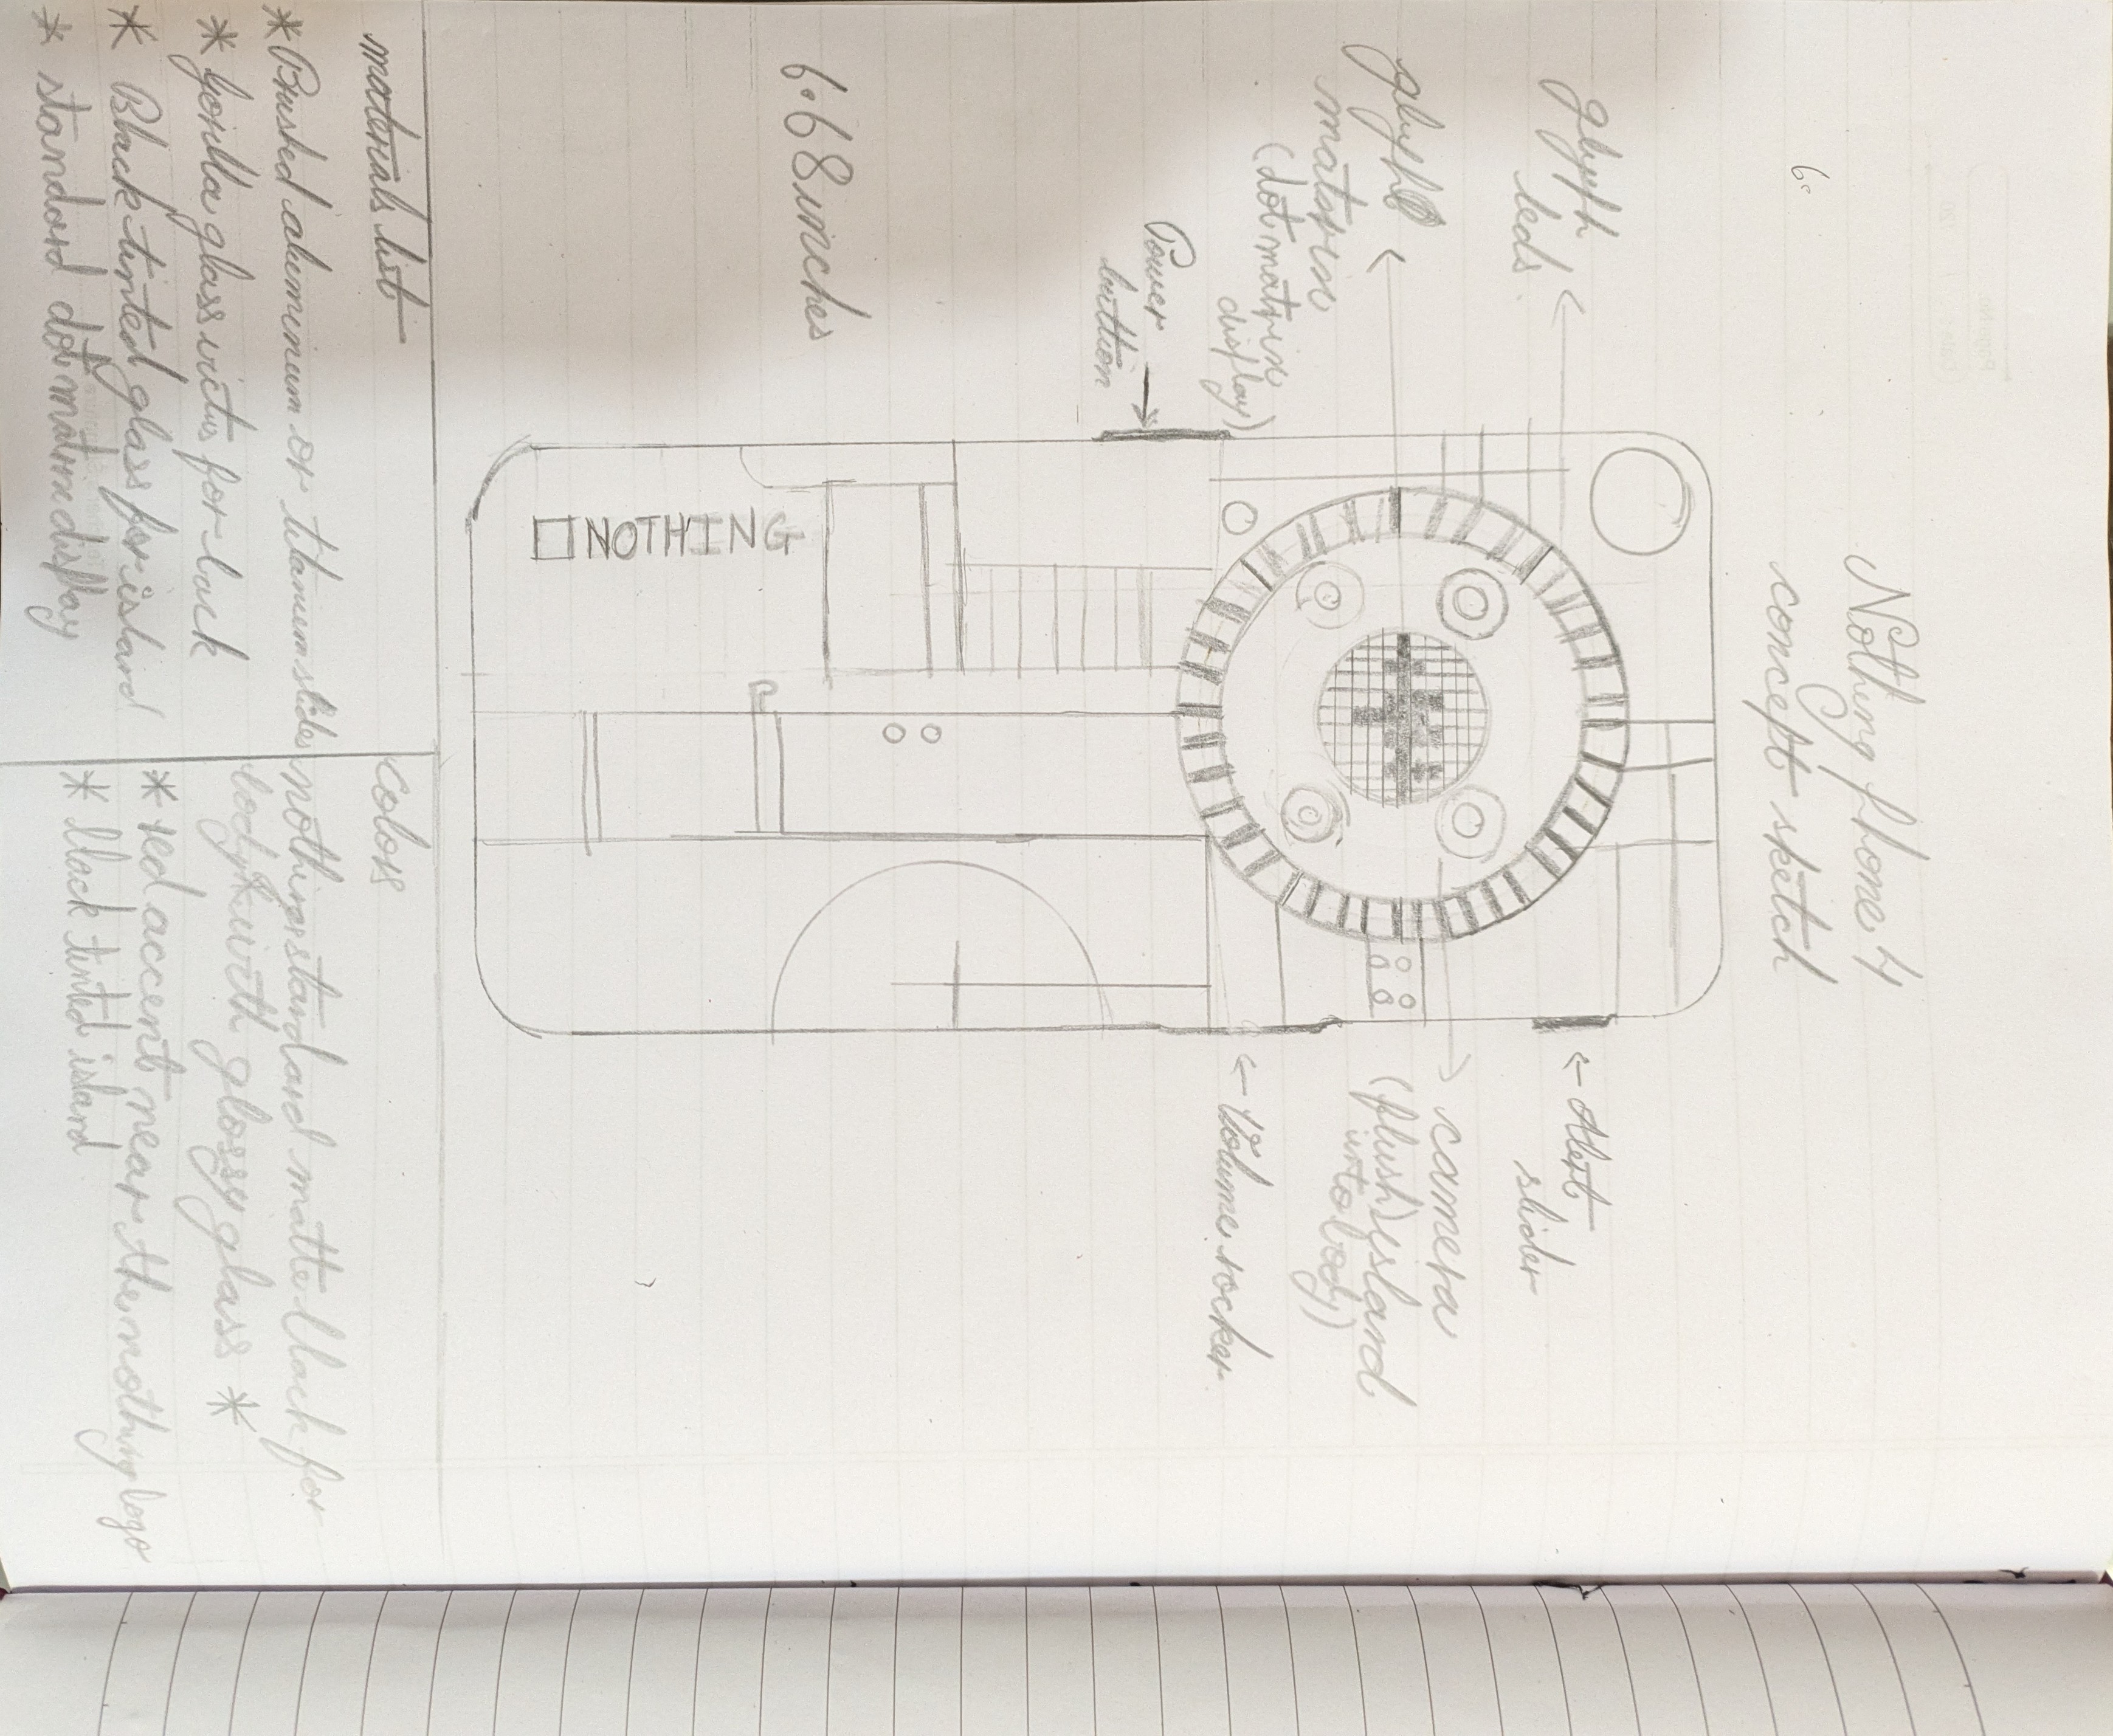 6.
Nothing phone 4
concept sketch
glyph
leds
glyph
matrix
(dot matrix
display)
Power
button
6.68 inches
Alert
slider
camera
(flush) island
into body)
Volume rocker
□NOTHING
materials list
* Brushed aluminum or titanium slides
* gorilla glass victus for back
* Black tinted glass for island
* standard dot matrix display
colors
nothing standard matte black for
body * with glossy glass *
* red accent near the nothing logo
* black tinted island